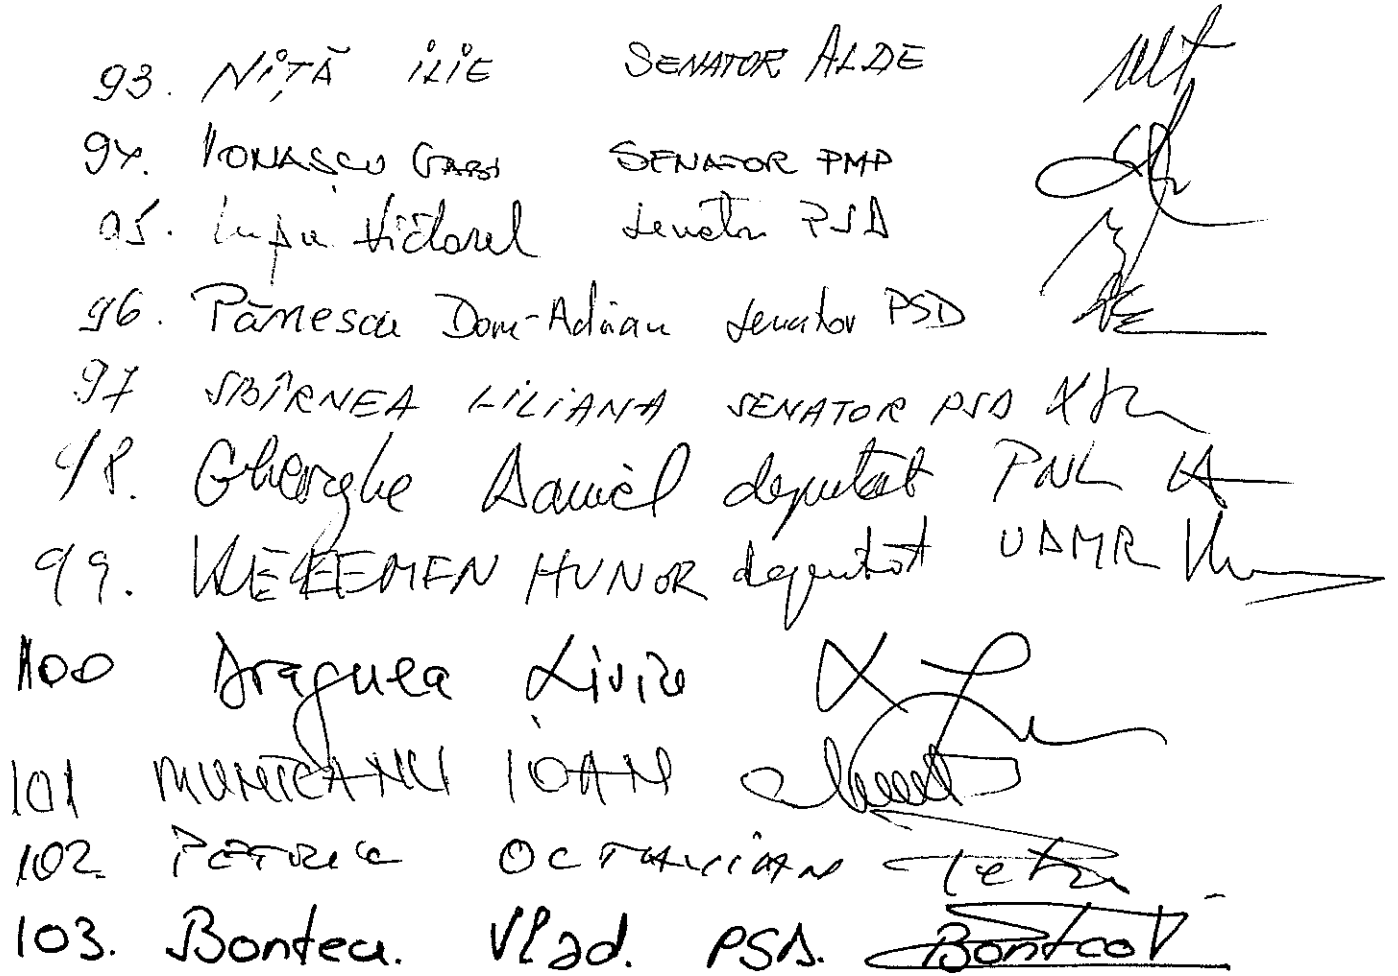 93. NIȚĂ ILIE SENATOR ALDE
94. IONAȘCU GABI SENATOR PMP
95. Lupu Victorel senator PSD
96. Pănescu Dom-Adrian senator PSD
97 SBÎRNEA LILIANA SENATOR PSD
98. Gheorghe Daniel deputat PNL
99. KELEMEN HUNOR deputat UDMR
100 Dragnea Liviu
101 MUNTEANU IOAN
102. PETRIC OCTAVIAN Petric
103. Bontea. Vlad. PSD. Bontea V